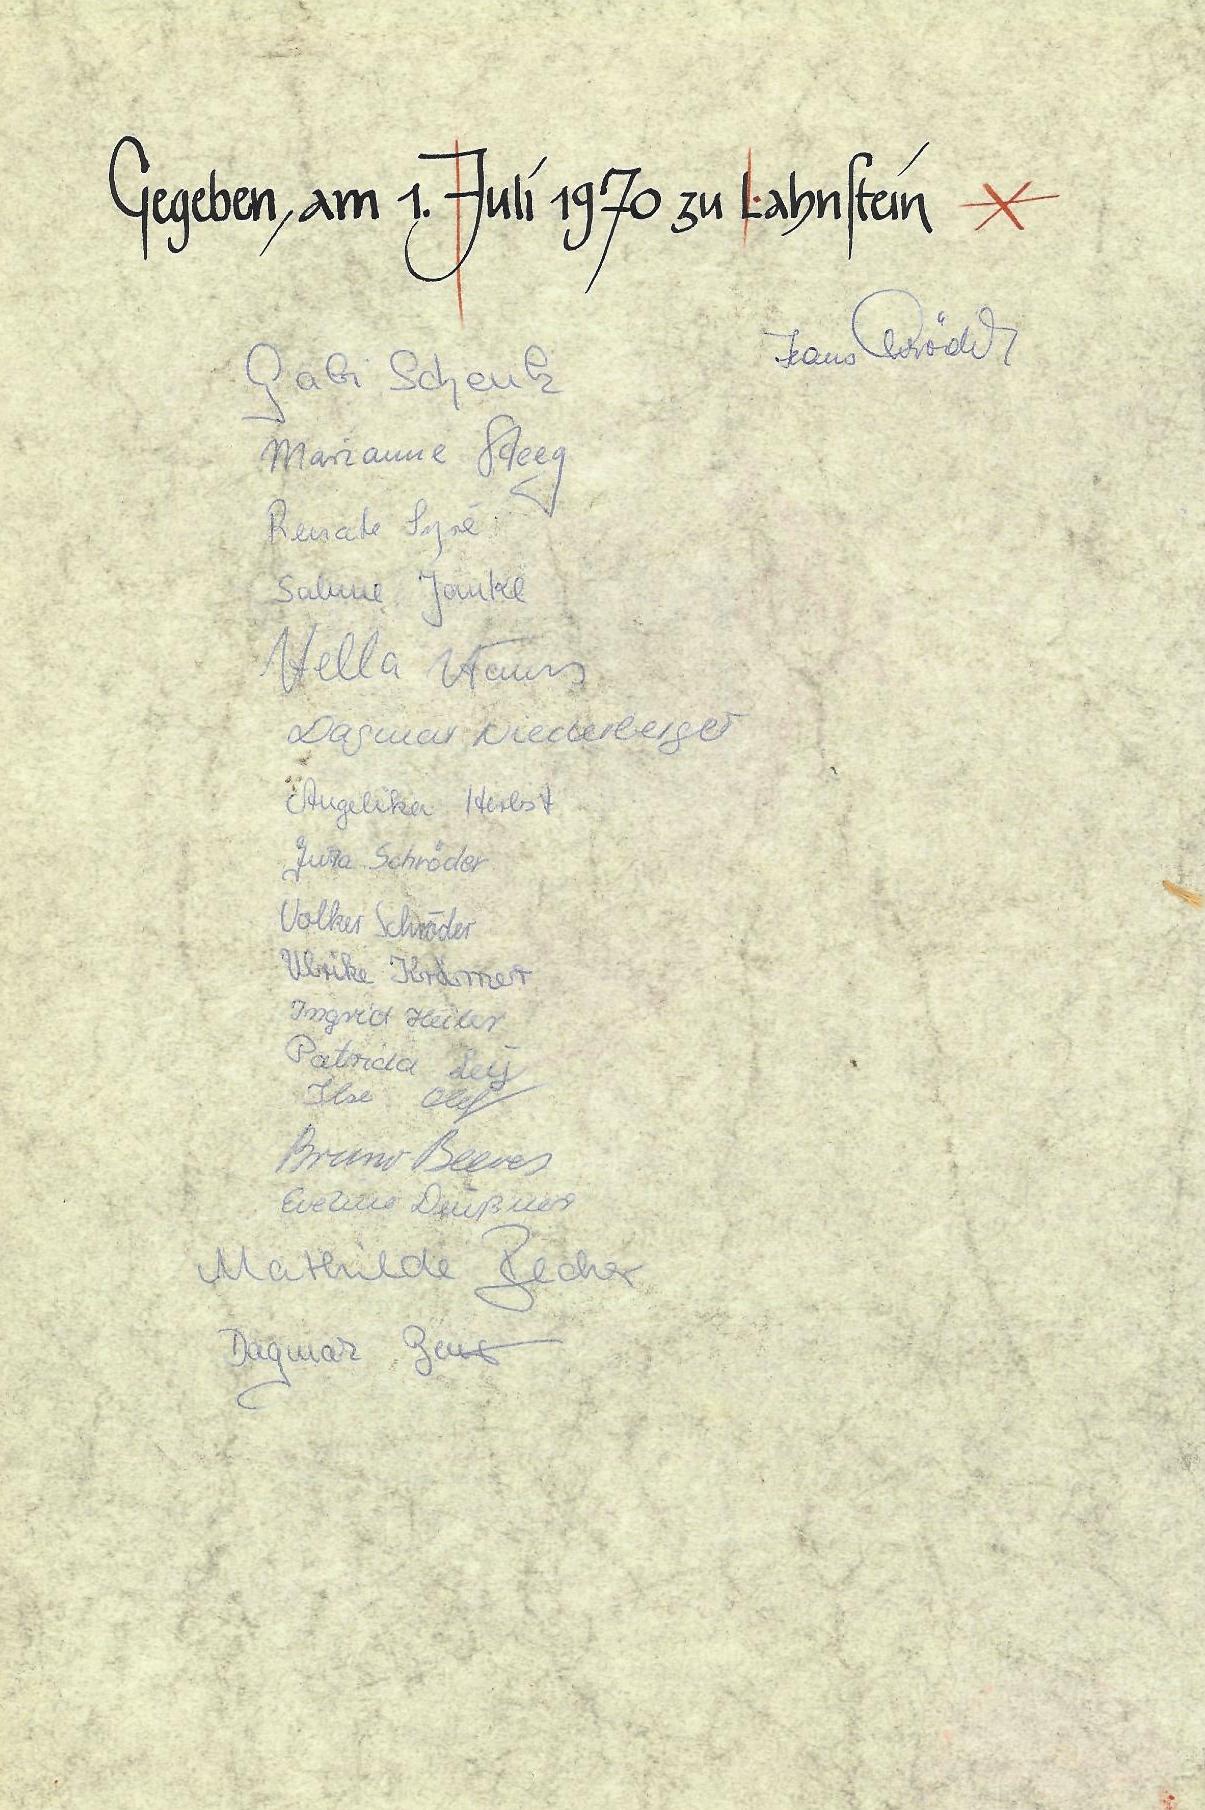 Gegeben, am 1. Juli 1970 zu Lahnstein
Hans Schröder
Gabi Schenk
Marianne Steeg
Renate Syré
Sabine Janke
Hella
Dagmar Niederberger
Angelika Herbst
Jutta Schröder
Volker Schröder
Ulrike Krämer
Ingrid Heiler
Patricia
Ilse Olef
Bruno Beeres
Eveline Deußner
Mathilde Becher
Dagmar